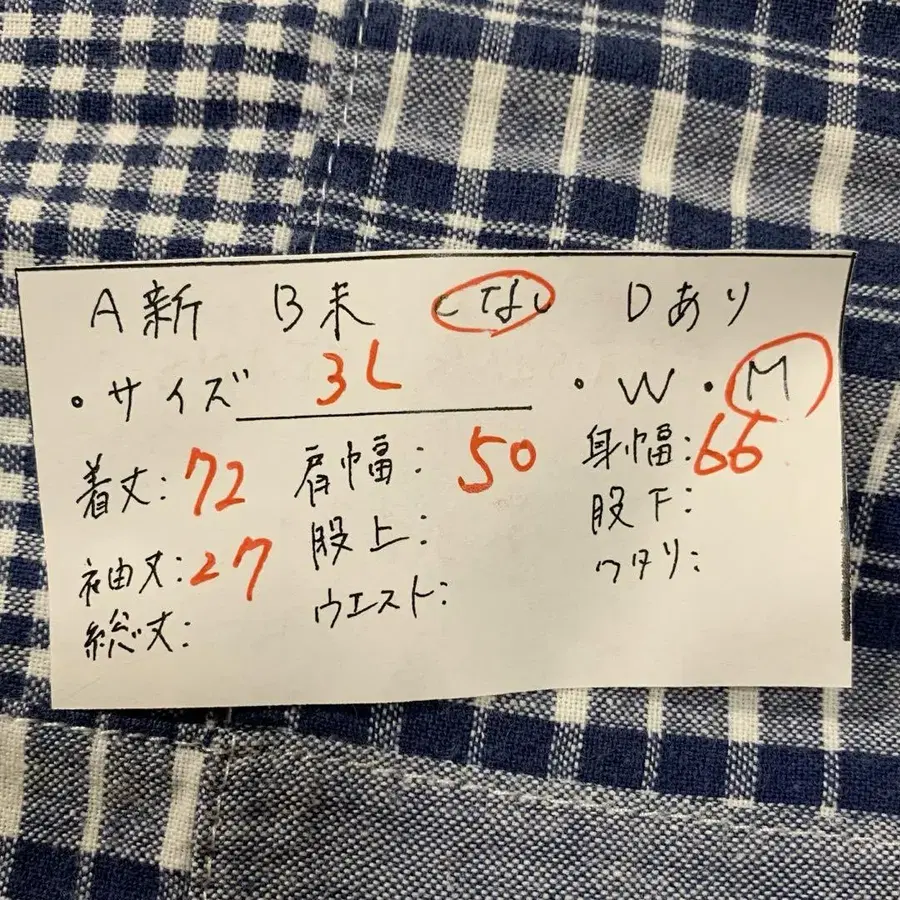 A新 B未 Cなし Dあり
・サイズ 3L ・W・M
着丈:72 肩幅:50 身幅:66
袖丈:27 股上: 股下:
総丈: ウエスト: ワタリ: